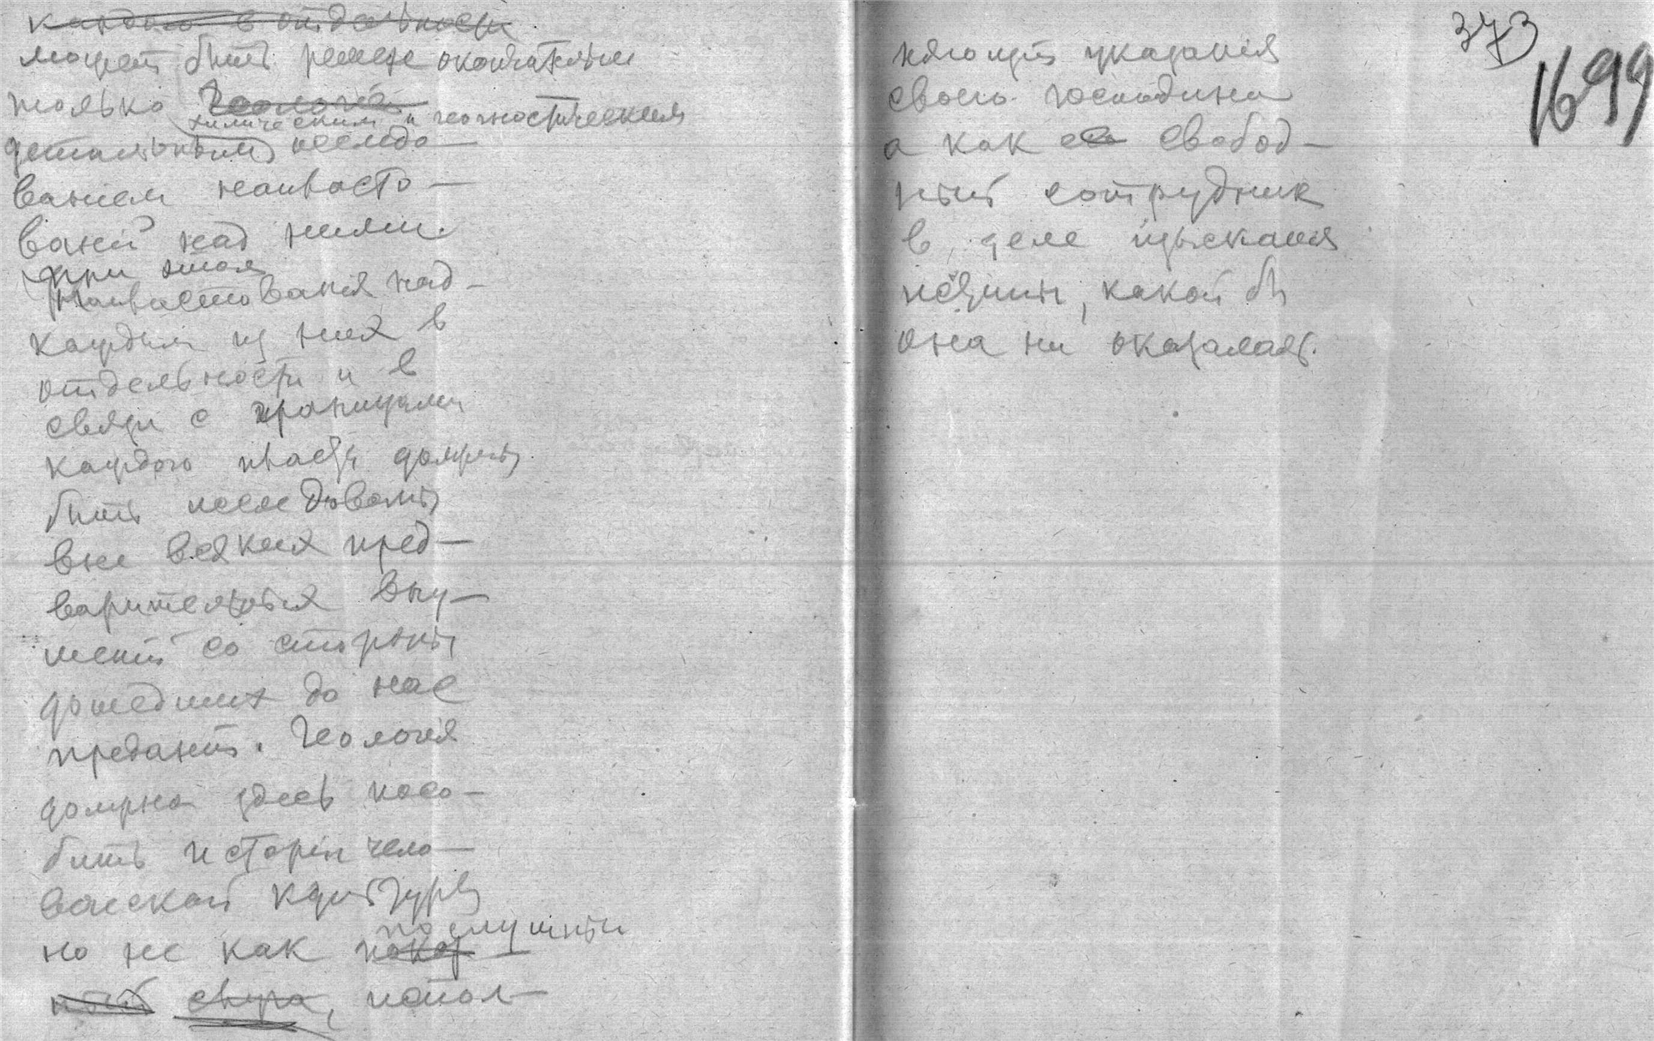 каждого в отдельности
может быть решен окончательно
только Геологіей
химическим и геогностическим
детальным изследо-
ванием напласто-
ваній над ними
при этом
Напластованія над
каждым из них в
отдельности и в
связи с границами
каждого пласта должны
быть изследованы
вне всяких пред-
варительных вну-
шеній со стороны
дошедших до нас
преданій. Геологія
должна здесь посо-
бить исторіи чело-
веческой культуры
но не как покор- послушный
ный слуга, испол-
373
1699
няющій указанія
своего господина
а как свобод-
ный сотрудник
в деле изысканія
истины, какой бы
она ни оказалась.